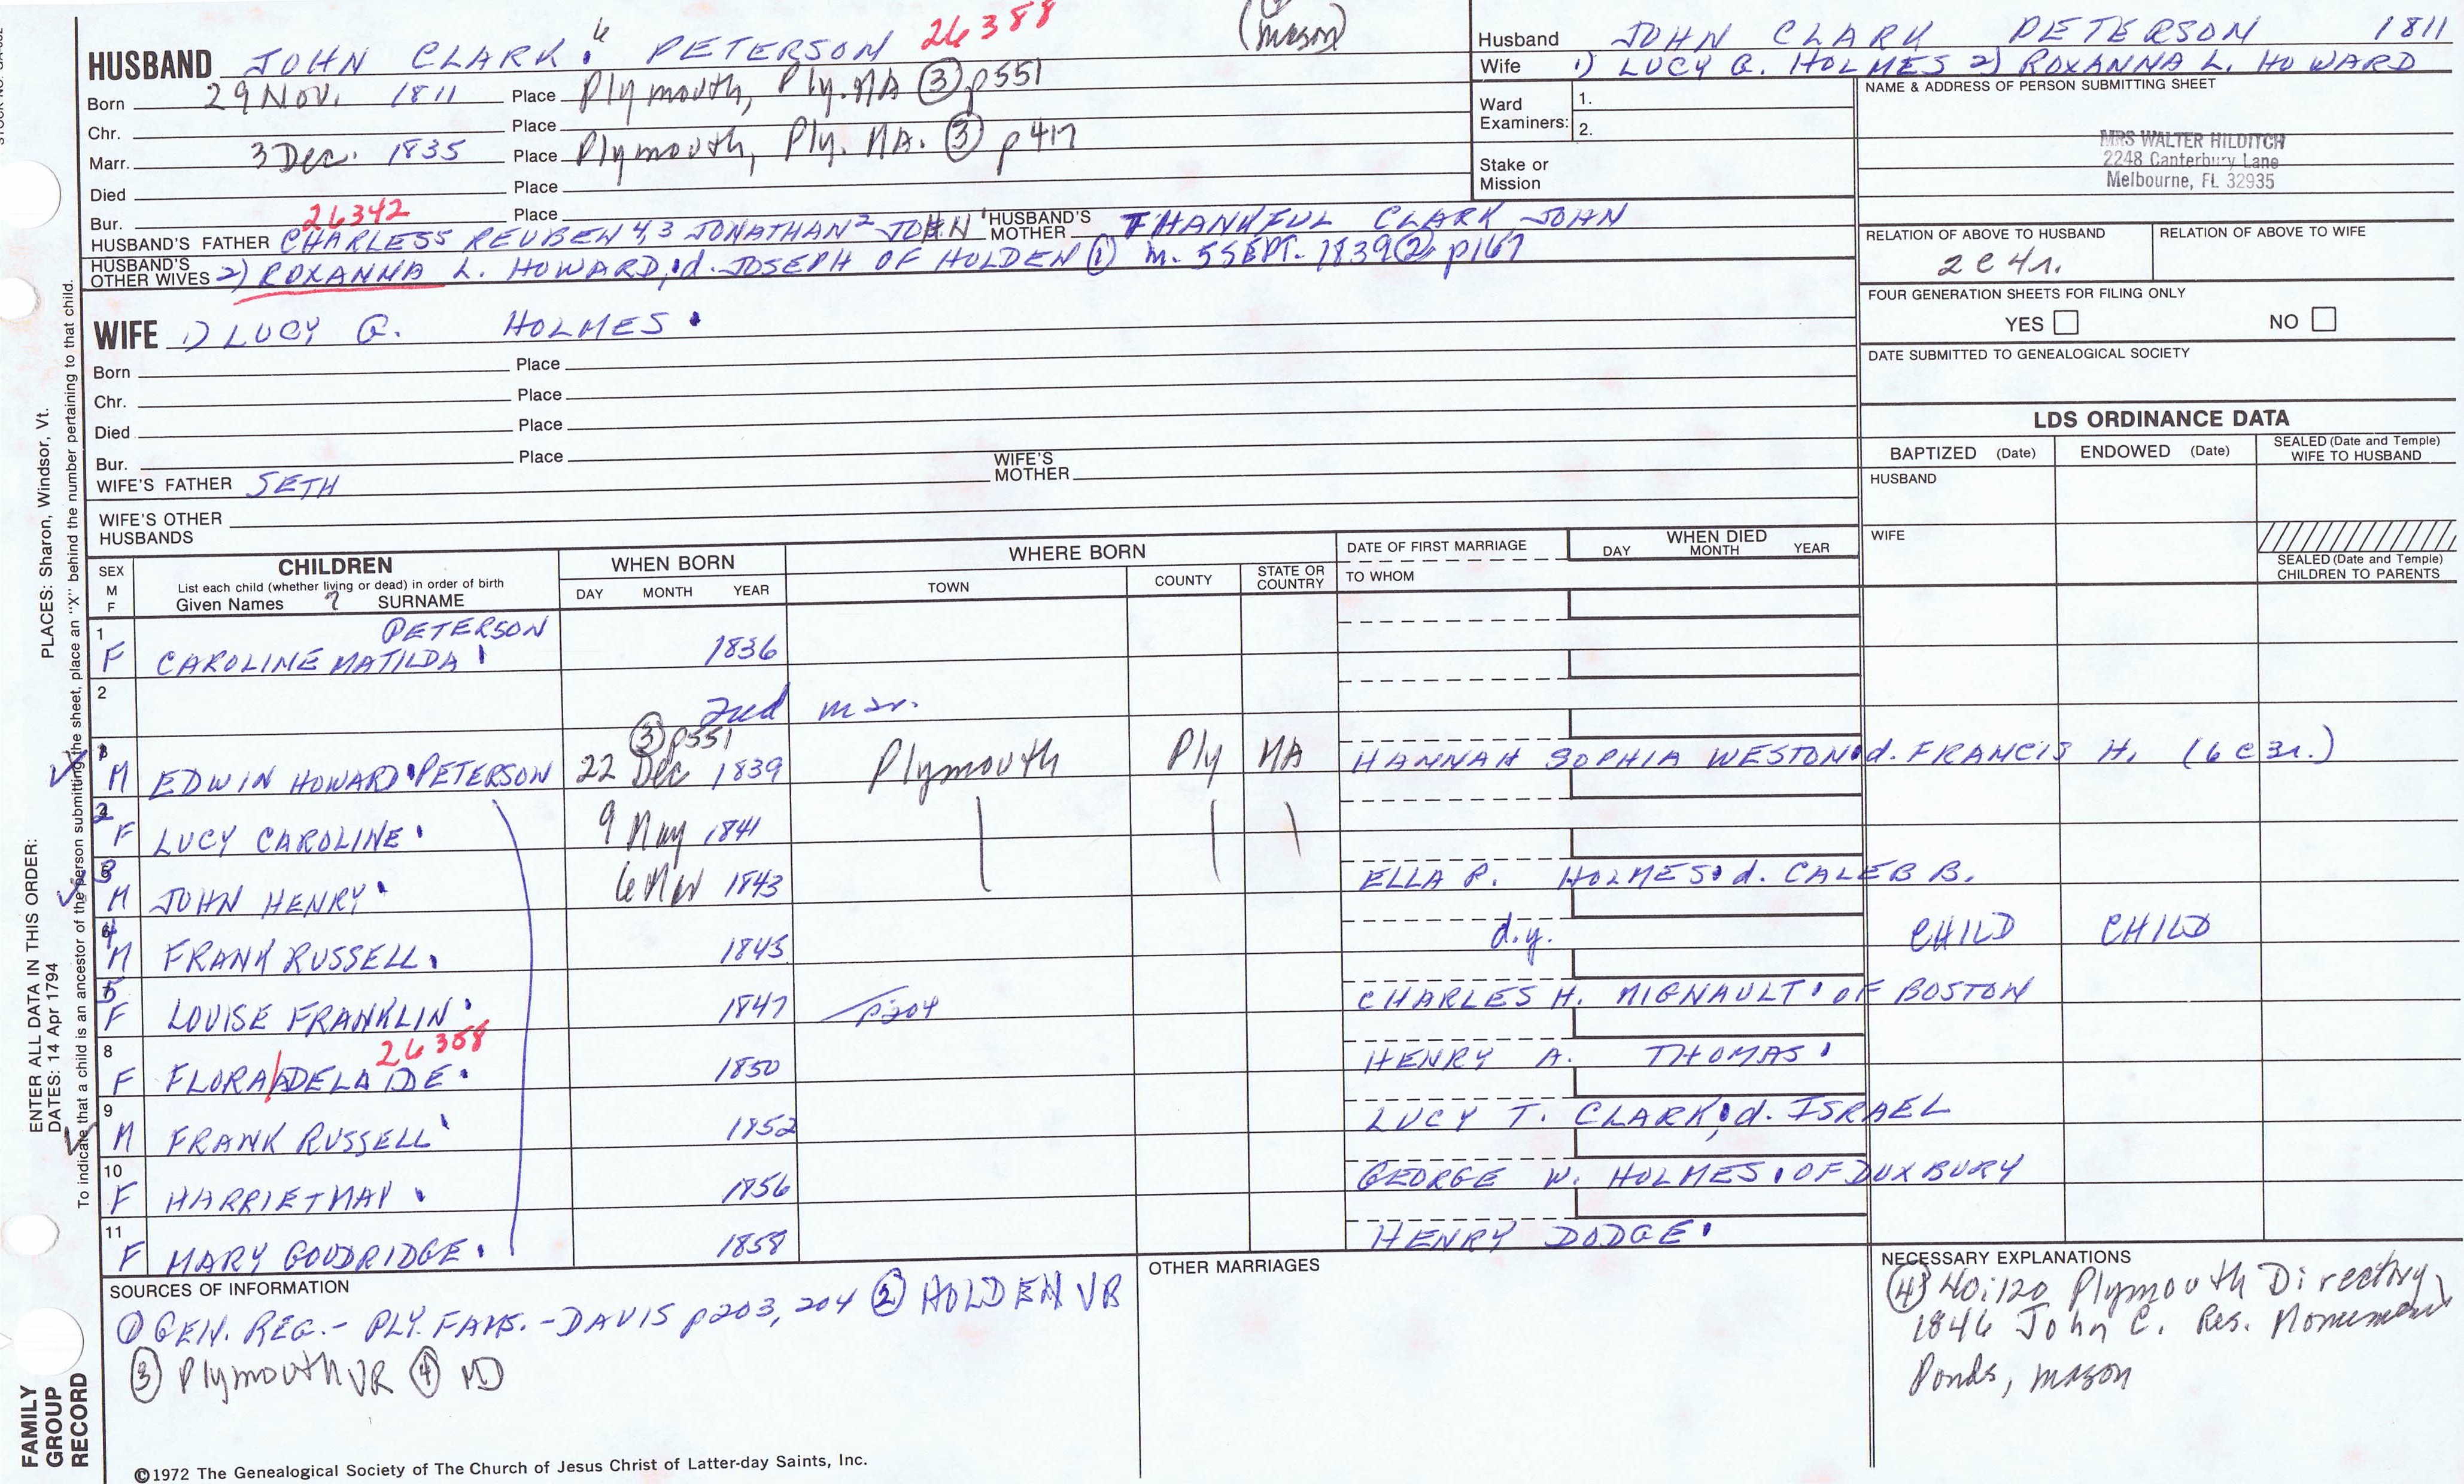 HUSBAND JOHN CLARK 6 PETERSON 26388 (mason)
Born 29 Nov. 1811 Place Plymouth, Ply. MA ③ p551
Chr. Place
Marr. 3 Dec. 1835 Place Plymouth, Ply. MA. ③ p417
Died Place
Bur. 26342 Place
HUSBAND'S FATHER CHARLES5 REUBEN 4,3 JONATHAN2 JOHN1 HUSBAND'S MOTHER THANKFUL CLARK, JOHN
HUSBAND'S OTHER WIVES 2) ROXANNA L. HOWARD, d. JOSEPH OF HOLDEN ① m. 5 SEPT. 1839 ② p167
WIFE 1) LUCY G. HOLMES
Born Place
Chr. Place
Died Place
Bur. Place
WIFE'S FATHER SETH WIFE'S MOTHER
WIFE'S OTHER HUSBANDS
Husband JOHN CLARK PETERSON 1811
Wife 1) LUCY G. HOLMES 2) ROXANNA L. HOWARD
Ward Examiners: 1.
2.
Stake or Mission
NAME & ADDRESS OF PERSON SUBMITTING SHEET
MRS WALTER HILDITCH
2248 Canterbury Lane
Melbourne, FL 32935
RELATION OF ABOVE TO HUSBAND RELATION OF ABOVE TO WIFE
2c4r.
FOUR GENERATION SHEETS FOR FILING ONLY
YES NO
DATE SUBMITTED TO GENEALOGICAL SOCIETY
LDS ORDINANCE DATA
BAPTIZED (Date) ENDOWED (Date) SEALED (Date and Temple) WIFE TO HUSBAND
HUSBAND
WIFE
SEALED (Date and Temple) CHILDREN TO PARENTS
SEX M F CHILDREN
List each child (whether living or dead) in order of birth
Given Names 7 SURNAME
WHEN BORN DAY MONTH YEAR
WHERE BORN TOWN COUNTY STATE OR COUNTRY
DATE OF FIRST MARRIAGE TO WHOM
WHEN DIED DAY MONTH YEAR
1 F CAROLINE MATILDA PETERSON 1836
2 2nd mar.
1 M EDWIN HOWARD PETERSON ③ p551 22 Dec 1839 Plymouth Ply MA HANNAH SOPHIA WESTON d. FRANCIS H. (6c3r.)
2 F LUCY CAROLINE 9 May 1841
3 M JOHN HENRY 6 Mar 1843 ELLA P. HOLMES d. CALEB B.
4 M FRANK RUSSELL 1845 d.y. CHILD CHILD
5 F LOUISE FRANKLIN 1847 p204 CHARLES H. MIGNAULT OF BOSTON
8 F FLORA/ADELAIDE 26388 1850 HENRY A. THOMAS
9 M FRANK RUSSELL 1852 LUCY T. CLARK, d. ISRAEL
10 F HARRIET MAY 1856 GEORGE W. HOLMES OF DUXBURY
11 F MARY GOODRIDGE 1858 HENRY DODGE
SOURCES OF INFORMATION
① GEN. REG.- PLY. FAMS. - DAVIS p203, 204 ② HOLDEN VR
③ Plymouth VR ④ MD
OTHER MARRIAGES
NECESSARY EXPLANATIONS
④ 40:120 Plymouth Directory,
1846 John C. Res. Monument
Ponds, mason
©1972 The Genealogical Society of The Church of Jesus Christ of Latter-day Saints, Inc.
FAMILY GROUP RECORD
ENTER ALL DATA IN THIS ORDER:
DATES: 14 Apr 1794
PLACES: Sharon, Windsor, Vt.
To indicate that a child is an ancestor of the person submitting the sheet, place an "X" behind the number pertaining to that child.